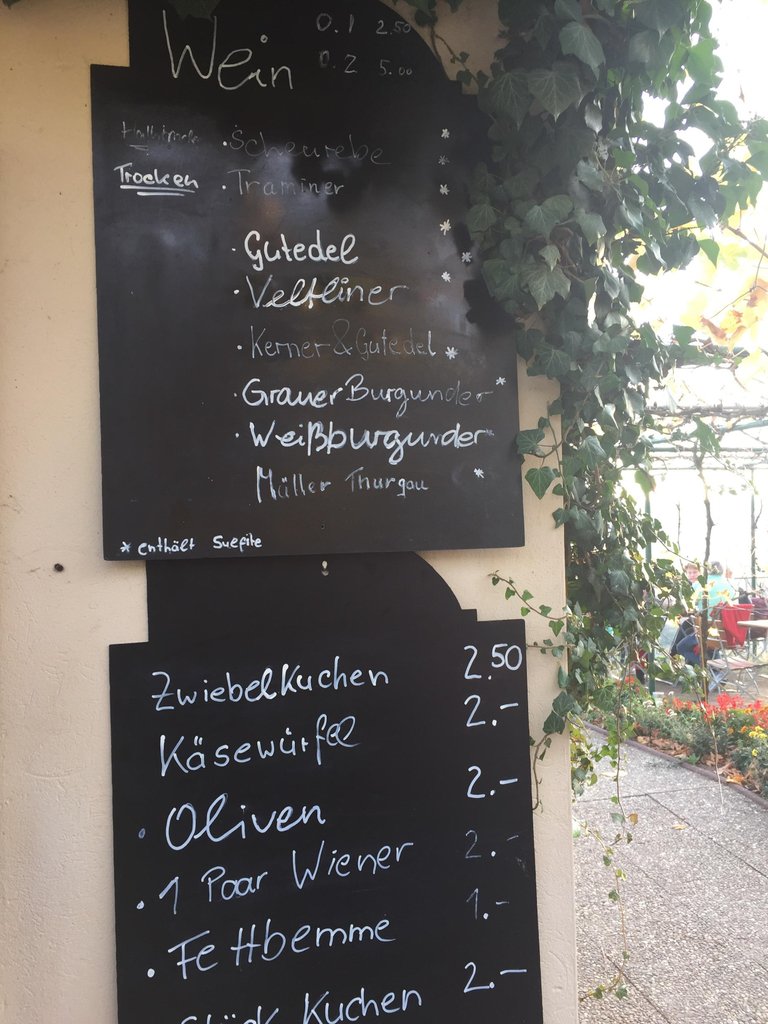 Wein 0.1 2.50
0.2 5.00
· Scheurebe *
Trocken · Traminer *
· Gutedel *
· Veltliner *
· Kerner & Gutedel *
· Grauer Burgunder *
· Weißburgunder
Müller Thurgau *
* enthält Suefite
Zwiebelkuchen 2.50
Käsewürfel 2.-
· Oliven 2.-
· 1 Paar Wiener 2.-
· Fettbemme 1.-
Stück Kuchen 2.-